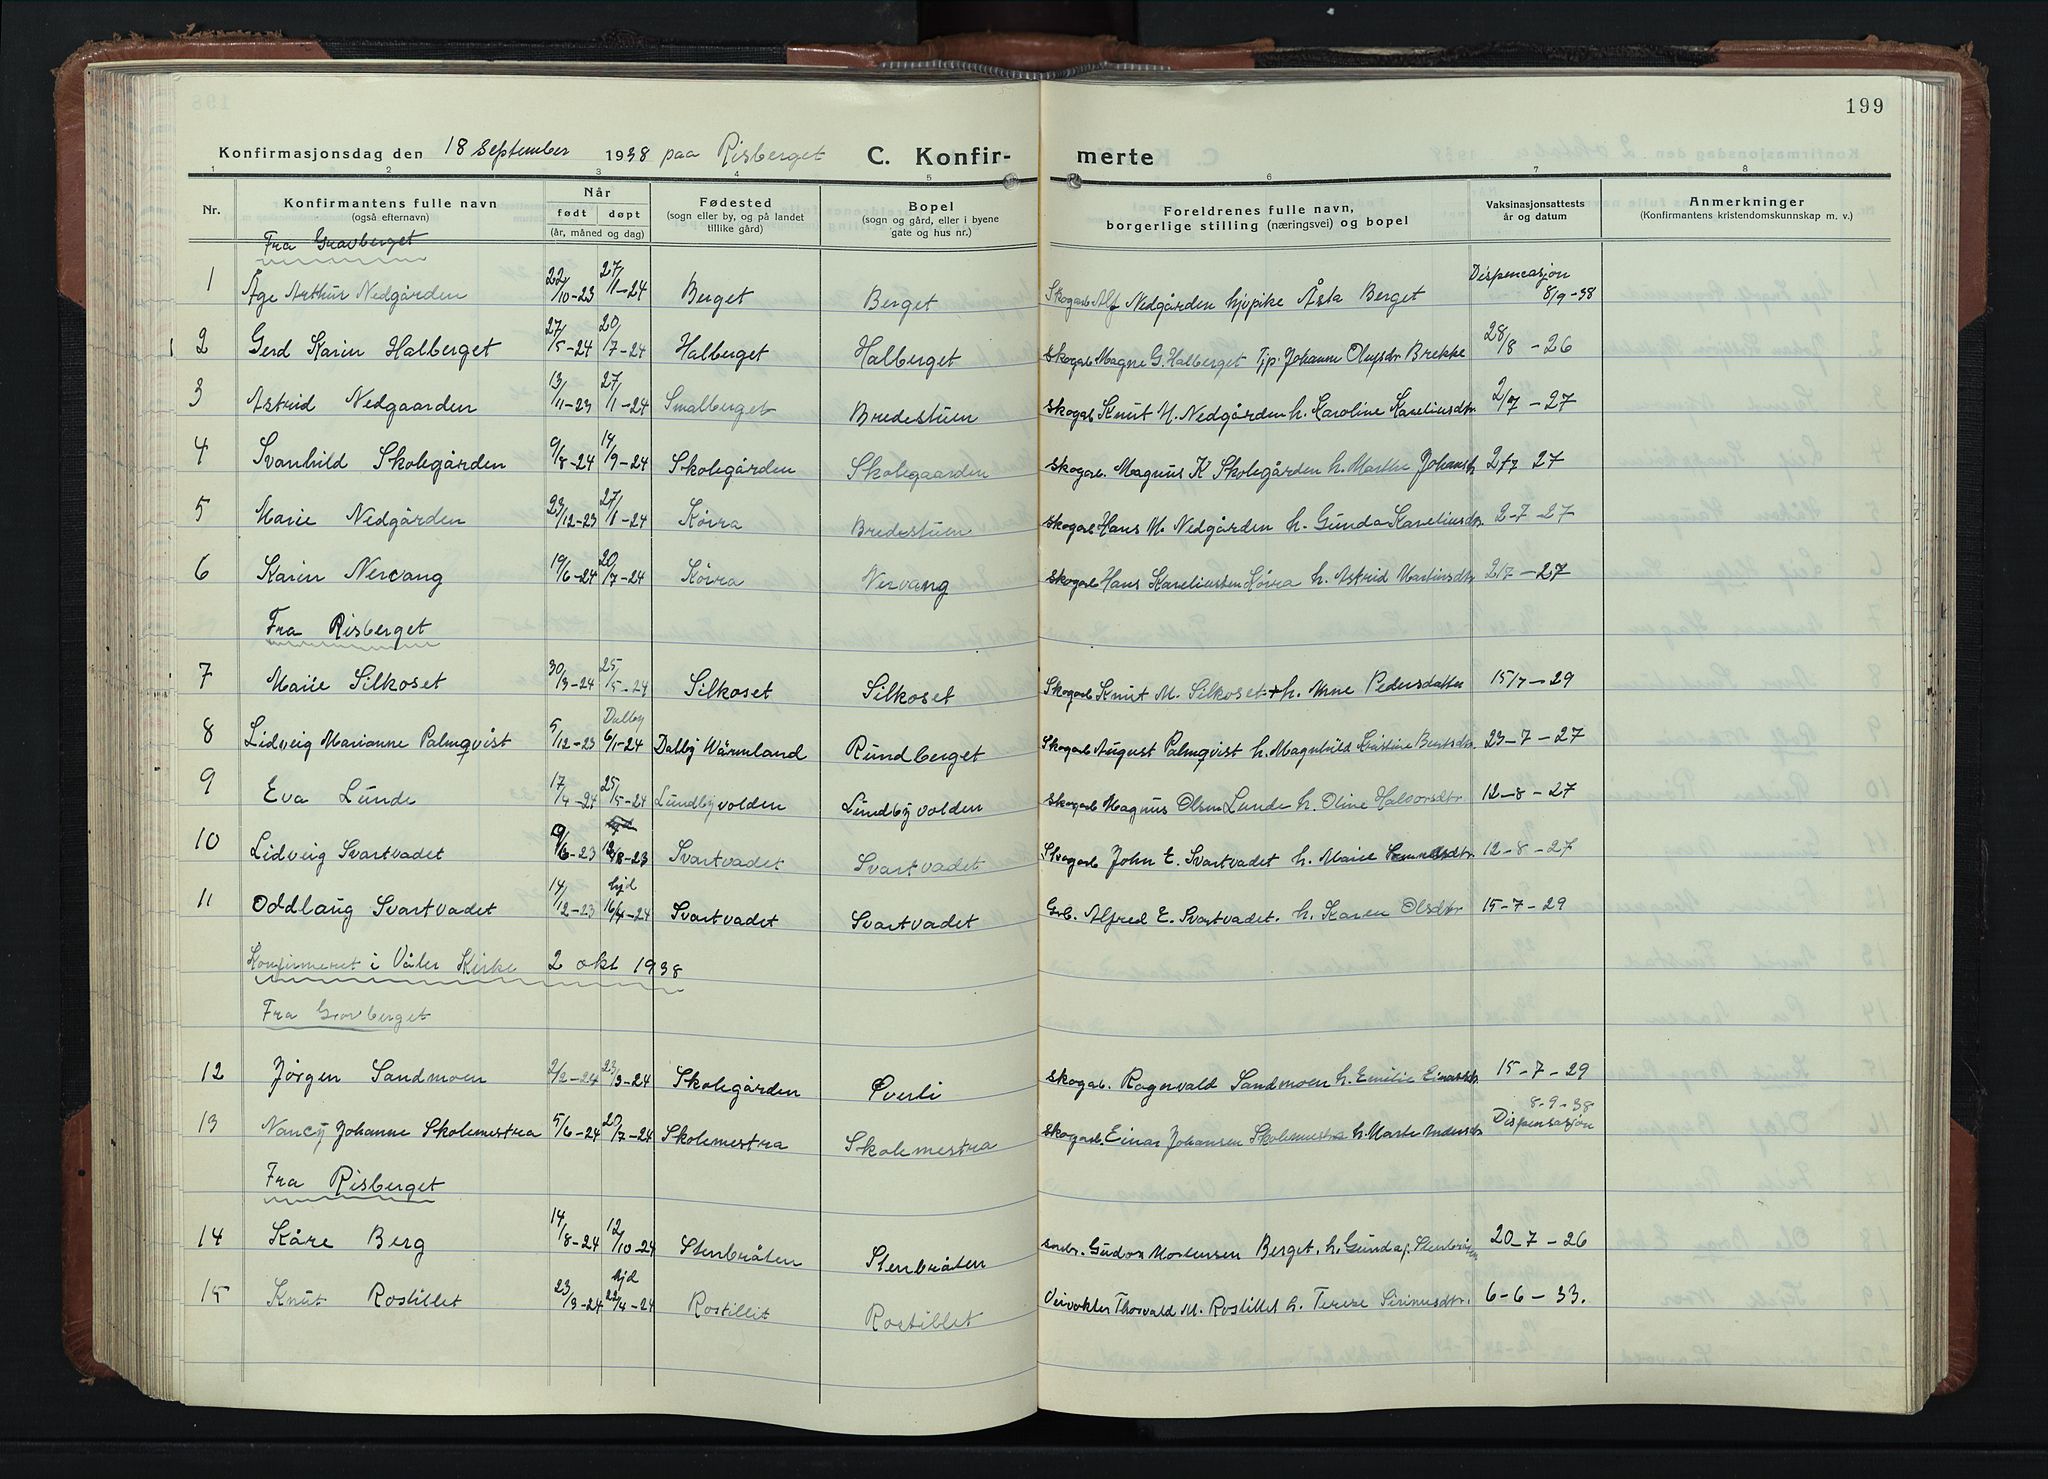 199
Konfirmasjonsdag den 18 September 1938 paa Risberget C. Konfir- merte
1 2 3 4 5 6 7 8
Nr. Konfirmantens fulle navn (også efternavn) Når født døpt (år, måned og dag) Fødested (sogn eller by, og på landet tillike gård) Bopel (sogn og gård, eller i byene gate og hus nr.) Foreldrenes fulle navn, borgerlige stilling (næringsvei) og bopel Vaksinasjonsattests år og datum Anmerkninger (Konfirmantens kristendomskunnskap m. v.)
Fra Gravberget
1 Åge Arthur Nedgården 22/10-23 27/1-24 Berget Berget Skogarb Alf Nedgården hjvpike Åsta Berget Dispensasjon 8/9-38
2 Gerd Karin Halberget 27/5-24 20/7-24 Halberget Halberget Skogarb Magne G. Halberget Tjp. Johanne Olufsdr Brekke 28/8-26
3 Astrid Nedgaarden 13/11-23 27/1-24 Smalberget Bredestuen Skogarb Knut M. Nedgården h. Karoline Kareliusdtr. 2/7-27
4 Svanhild Skolegården 9/8-24 14/9-24 Skolegården Skolegaarden Skogarb. Magnus K Skolegården h. Marthe Johansdtr 2/7 27
5 Marie Nedgården 23/12-23 27/1-24 Køvra Bredestuen Skogarb Hans M. Nedgården h. Gunda Kareliusdtr. 2-7-27
6 Karin Nervang 19/6-24 20/7-24 Køvra Nervang Skogarb Hans Kareliussen Køvra h. Astrid Martinsdtr 2/7-27
Fra Risberget
7 Marie Silkoset 30/3-24 25/5-24 Silkoset Silkoset Skogarb Knut M. Silkoset + h. Arne Pedersdatter 15/7-29
8 Lidveig Marianne Palmqvist 5/12-23 Dalby 6/1-24 Dalby Wärmland Rundberget Skogarb August Palmqvist h. Magnhild Kristine Berntsdtr. 23-7-27
9 Eva Lunde 17/4-24 25/5-24 Lundbyvolden Lundbyvolden Skogarb Magnus Olsen Lunde h. Oline Halvorsdtr 12-8-27
10 Lidveig Svartvadet 9/6-23 12/8-23 Svartvadet Svartvadet Skogarb John E. Svartvadet h. Marie 12-8-27
11 Oddlaug Svartvadet 14/12-23 hjd 16/4-24 Svartvadet Svartvadet Grb. Alfred E. Svartvadet. h. Karen Olsdtr 15-7-29
Konfirmeret i Våler Kirke 2 okt 1938
Fra Gravberget
12 Jørgen Sandmoen 2/2-24 23/3-24 Skolegården Øverli Skogarb. Ragnvald Sandmoen h. Emilie Einarsdtr 15-7-29
13 Nancy Johanne Skolemestra 5/6-24 20/7-24 Skolemestra Skolemestra Skogarb Einar Johansen Skolemestra h. Marte Andersdtr 8-9-38 Dispensasjon
Fra Risberget
14 Kåre Berg 14/8-24 12/10-24 Stenbråten Stenbråten Gudor Mortensen Berget. h. Gunda f. Stenbråten 20-7-26
15 Knut Rostillet 23/3-24 hjd 22/4-24 Rostillet Rostillet Veivokter Thorvald M. Rostillet h. Terese Sirinusdtr. 6-6-33.